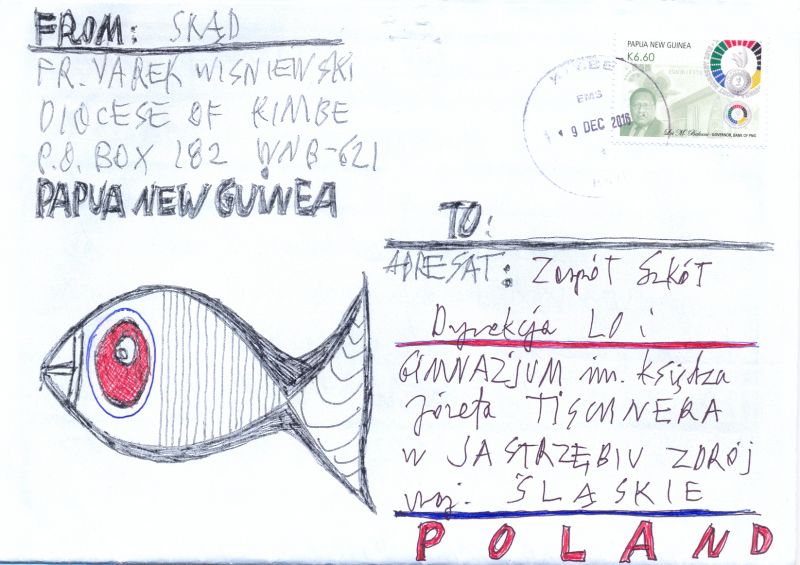 FROM: SKĄD
FR. JAREK WIŚNIEWSKI
DIOCESE OF KIMBE
P.O. BOX 182 WNB-621
PAPUA NEW GUINEA
PAPUA NEW GUINEA
K6.60
GOVERNOR, BANK OF PNG
EMS
9 DEC 2016
TO:
ADRESAT: Zespół Szkół
Dyrekcja LO i
GIMNAZJUM im. księdza
Józefa TISCHNERA
W JASTRZĘBIU ZDRÓJ
woj. ŚLĄSKIE
POLAND